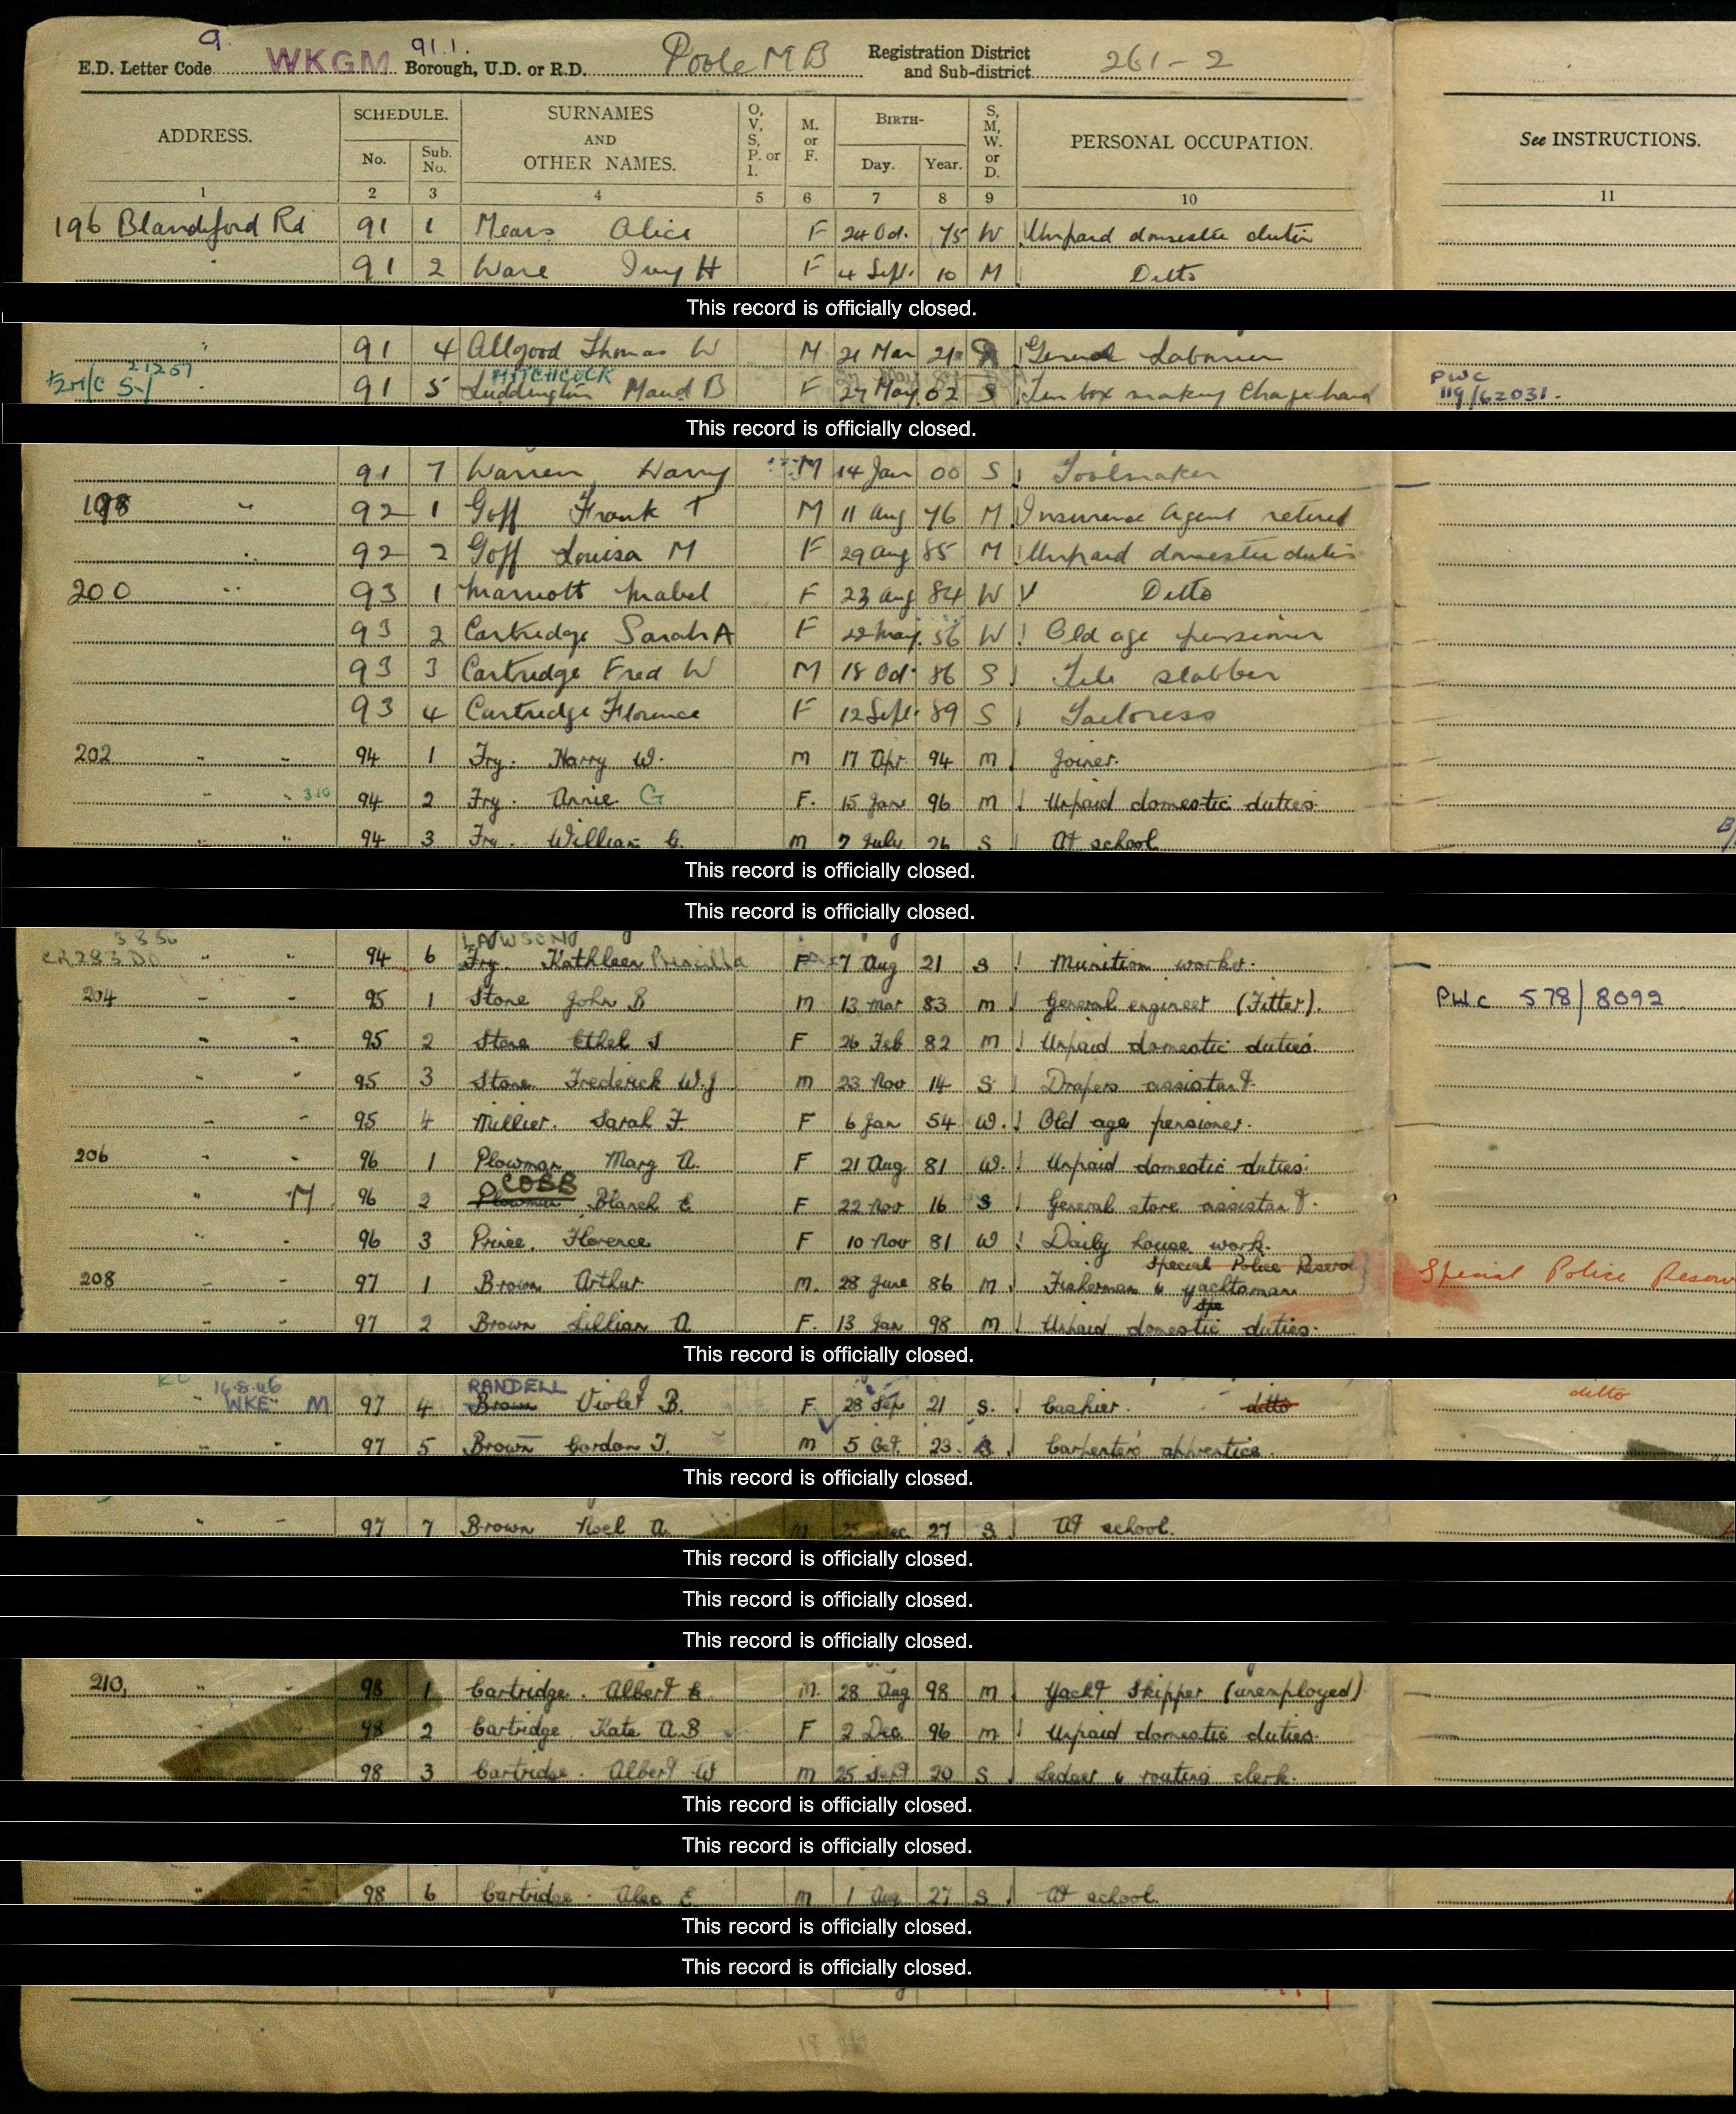 9 91.1.
E.D. Letter Code WKGM Borough, U.D. or R.D. Poole M B Registration District and Sub-district 261-2
ADDRESS. SCHEDULE. No. Sub. No. SURNAMES AND OTHER NAMES. O, V, S, P. or I. M. or F. BIRTH- Day. Year. S, M, W. or D. PERSONAL OCCUPATION. See INSTRUCTIONS.
1 2 3 4 5 6 7 8 9 10 11
196 Blandford Rd 91 1 Mears Alice F 24 Oct. 75 W Unpaid domestic duties
" 91 2 Ware Ivy H F 4 Sept. 10 M Ditto
This record is officially closed.
" 91 4 Allgood Thomas W M 21 Mar 21 General Labourer
21257 HITCHCOCK PWC
91 5 Luddington Maud B F 27 May 02 S Tin box making Chargehand 119/62031.
This record is officially closed.
91 7 Warren Harry M 14 Jan 00 S Toolmaker
198 " 92 1 Goff Frank T M 11 Aug 76 M Insurance Agent retired
" 92 2 Goff Louisa M F 29 Aug 85 M Unpaid domestic duties
200 " 93 1 Marriott Mabel F 23 Aug 84 W Ditto
93 2 Cartridge Sarah A F 22 May. 56 W Old age pensioner
93 3 Cartridge Fred W M 18 Oct. 86 S Tile slabber
93 4 Cartridge Florence F 12 Sept. 89 S Tailoress
202 " " 94 1 Fry. Harry W. M 17 Apr 94 M Joiner.
" " 94 2 Fry. Annie G F. 15 Jan 96 M Unpaid domestic duties.
" " 94 3 Fry. William G. M 7 July 26 S At school
This record is officially closed.
This record is officially closed.
LAWSON
" " 94 6 Fry. Kathleen Priscilla F 7 Aug 21 S Munition worker.
204 " " 95 1 Stone John B M 13 Mar 83 M General engineer (Fitter). PWC 578/8092
" " 95 2 Stone Ethel S F 26 Feb 82 M Unpaid domestic duties.
" " 95 3 Stone Frederick W.J M 23 Nov 14 S Drapers assistant.
" " 95 4 Millier. Sarah F. F 6 Jan 54 W. Old age pensioner.
206 " " 96 1 Plowman Mary A. F 21 Aug 81 W. Unpaid domestic duties.
COBB
" M 96 2 Plowman Blanch E F 22 Nov 16 S General store assistant.
" " 96 3 Prince. Florence F 10 Nov 81 W Daily house work.
Special Police Reserve Special Police Reserv
208 " " 97 1 Brown Arthur M. 28 June 86 M Fisherman & yachtsman
Spe
97 2 Brown Lillian A F. 13 Jan 98 M Unpaid domestic duties.
This record is officially closed.
16.8.46 RANDELL ditto
" WKE M 97 4 Brown Violet B. F. 28 Sep 21 S. Cashier. ditto
" " 97 5 Brown Gordon J. M 5 Oct. 23. S Carpenters apprentice.
This record is officially closed.
" " 97 7 Brown Noel A. M 25 Dec. 27 S At school.
This record is officially closed.
This record is officially closed.
This record is officially closed.
210, " " 98 1 Cartridge. Albert E M. 28 Aug 98 M Yacht Skipper (unemployed)
" " 98 2 Cartridge. Kate A.B F 2 Dec. 96 M Unpaid domestic duties.
98 3 Cartridge. Albert W M 25 Sept 20 S Ledger & routing clerk.
This record is officially closed.
This record is officially closed.
" 98 6 Cartridge. Alec E M 1 Aug 27 S At school.
This record is officially closed.
This record is officially closed.